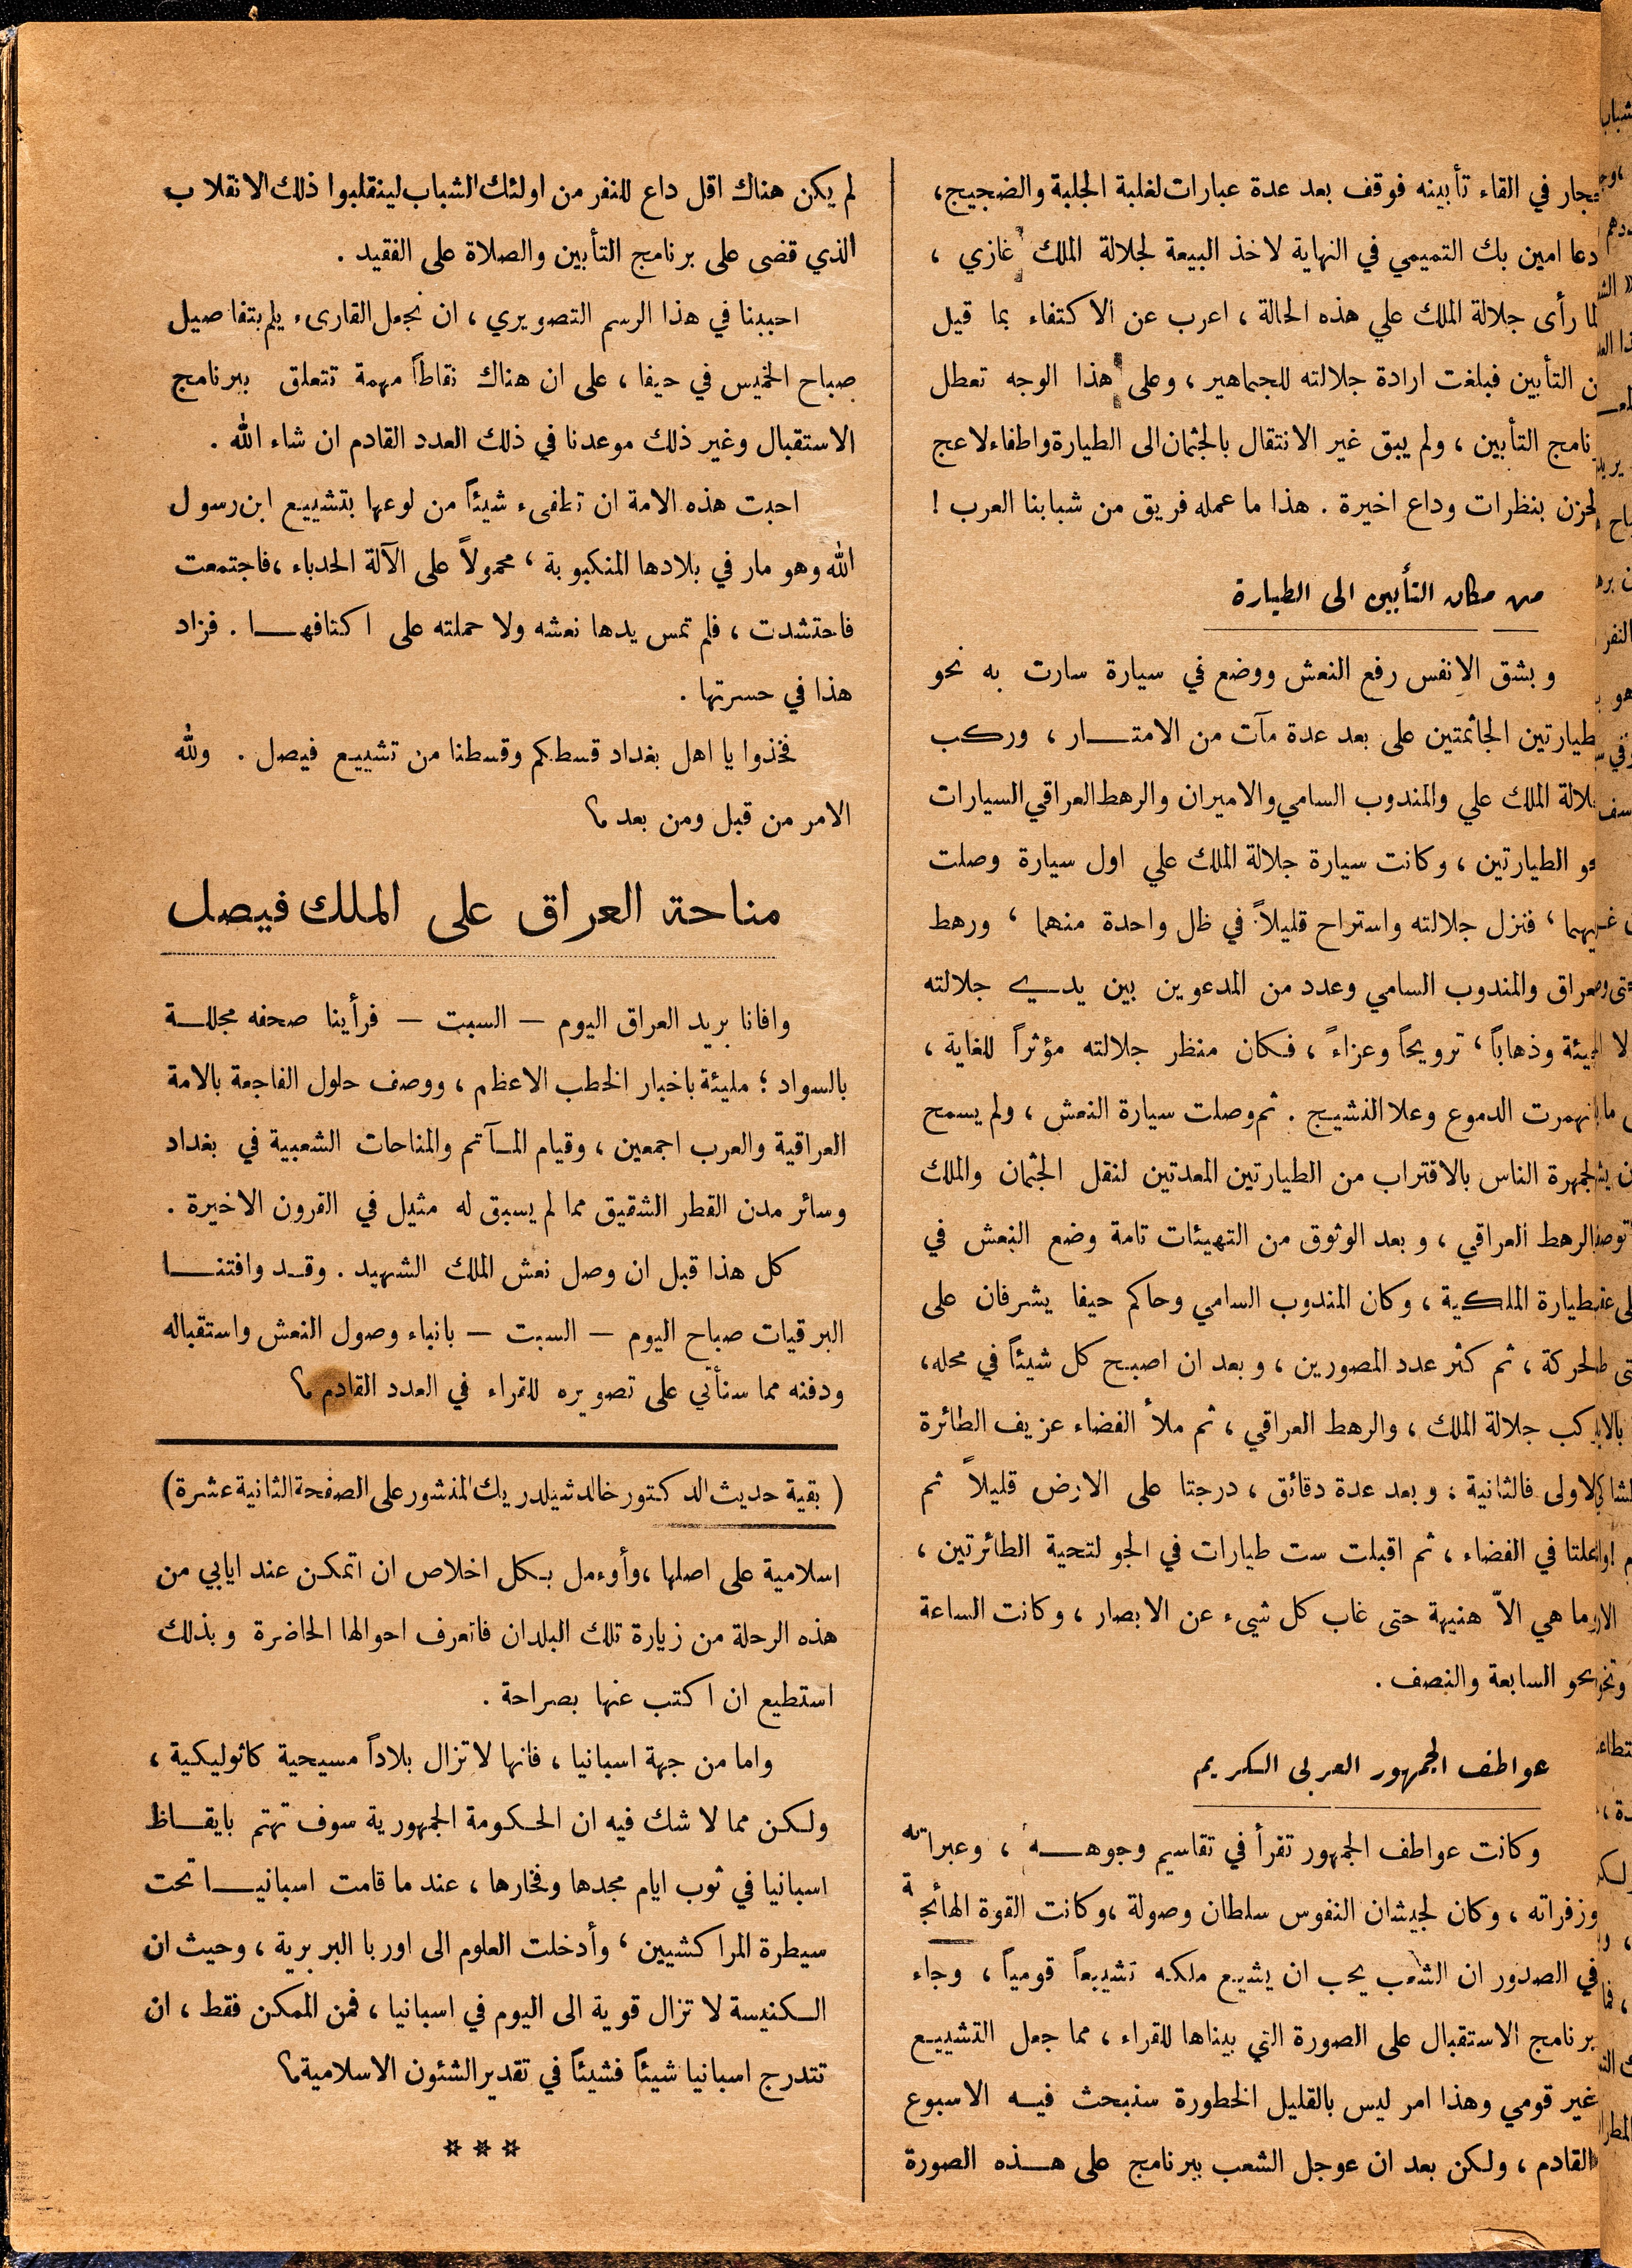 جار في القاء تأبينه فوقف بعد عدة عبارات لغلبة الجلبة والضجيج،
دعا امين بك التميمي في النهاية لاخذ البيعة لجلالة الملك غازي ،
لما رأى جلالة الملك علي هذه الحالة ، اعرب عن الاكتفاء بما قيل
ن التأبين فبلغت ارادة جلالته للجماهير ، وعلى هذا الوجه تعطل
نامج التأبين ، ولم يبق غير الانتقال بالجثمان الى الطيارة واطفاء لاعج
لحزن بنظرات وداع اخيرة . هذا ما عمله فريق من شبابنا العرب !
من مكان التأبين الى الطيارة
وبشق الانفس رفع النعش ووضع في سيارة سارت به نحو
طيارتين الجاثمتين على بعد عدة مآت من الامتــار ، وركب
لالة الملك علي والمندوب السامي والاميران والرهط العراقي السيارات
و الطيارتين ، وكانت سيارة جلالة الملك علي اول سيارة وصلت
يهما ، فنزل جلالته واستراح قليلاً في ظل واحدة منهما ، ورهط
عراق والمندوب السامي وعدد من المدعوين بين يدي جلالته
يئة وذهاباً ، ترويحاً وعزاءً ، فكان منظر جلالته مؤثراً للغاية ،
نهمرت الدموع وعلا النشيج . ثم وصلت سيارة النعش ، ولم يسمح
لجمهرة الناس بالاقتراب من الطيارتين المعدتين لنقل الجثمان والملك
الرهط العراقي ، وبعد الوثوق من التهيئات تامة وضع النعش في
طيارة الملكية ، وكان المندوب السامي وحاكم حيفا يشرفان على
لحركة ، ثم كثر عدد المصورين ، وبعد ان اصبح كل شيئاً في محله،
كب جلالة الملك ، والرهط العراقي ، ثم ملأ الفضاء عزيف الطائرة
لاولى فالثانية ، وبعد عدة دقائق ، درجتا على الارض قليلاً ثم
علتا في الفضاء ، ثم اقبلت ست طيارات في الجو لتحية الطائرتين ،
ما هي الاّ هنيهة حتى غاب كل شيء عن الابصار ، وكانت الساعة
نحو السابعة والنصف .
عواطف الجمهور العربي الكريم
وكانت عواطف الجمهور تقرأ في تقاسيم وجوهــه ، وعبراته
وزفراته ، وكان لجيشان النفوس سلطان وصولة ،وكانت القوة الهائجة
في الصدور ان الشعب يحب ان يشيع ملكه تشييعاً قومياً ، وجاء
برنامج الاستقبال على الصورة التي بيناها للقراء ، مما جعل التشييع
غير قومي وهذا امر ليس بالقليل الخطورة سنبحث فيه الاسبوع
القادم ، ولكن بعد ان عوجل الشعب ببرنامج على هــذه الصورة
لم يكن هناك اقل داع للنفر من اولئك الشباب لينقلبوا ذلك الانقلاب
الذي قضى على برنامج التأبين والصلاة على الفقيد .
احببنا في هذا الرسم التصويري ، ان نجعل القارىء يلم بتفاصيل
صباح الخميس في حيفا ، على ان هناك نقاطاً مهمة تتعلق ببرنامج
الاستقبال وغير ذلك موعدنا في ذلك العدد القادم ان شاء الله .
احبت هذه الامة ان تطفىء شيئاً من لوعها بتشييع ابن رسول
الله وهو مار في بلادها المنكوبة ، محمولاً على الآلة الحدباء ،فاجتمعت
فاحتشدت ، فلم تمس يدها نعشه ولا حملته على اكتافهــا . فزاد
هذا في حسرتها .
فخذوا يا اهل بغداد قسطكم وقسطنا من تشييع فيصل . ولله
الامر من قبل ومن بعد ؟
مناحة العراق على الملك فيصل
وافانا بريد العراق اليوم – السبت – فرأينا صحفه مجللــة
بالسواد ؛ مليئة باخبار الخطب الاعظم ، ووصف حلول الفاجعة بالامة
العراقية والعرب اجمعين ، وقيام المـآتم والمناحات الشعبية في بغداد
وسائر مدن القطر الشقيق مما لم يسبق له مثيل في القرون الاخيرة .
كل هذا قبل ان وصل نعش الملك الشهيد . وقــد وافتنــا
البرقيات صباح اليوم – السبت – بانباء وصول النعش واستقباله
ودفنه مما سنأتي على تصويره للقراء في العدد القادم ؟
( بقية حديث الدكتور خالد شيلدريك المنشور على الصفحة الثانية عشرة)
اسلامية على اصلها ،وأوءمل بكل اخلاص ان اتمكن عند ايابي من
هذه الرحلة من زيارة تلك البلدان فاتعرف احوالها الحاضرة وبذلك
استطيع ان اكتب عنها بصراحة .
واما من جهة اسبانيا ، فانها لا تزال بلاداً مسيحية كاثوليكية ،
ولكن مما لا شك فيه ان الحكومة الجمهورية سوف تهتم بايقــاظ
اسبانيا في ثوب ايام مجدها وفخارها ، عند ما قامت اسبانيــا تحت
سيطرة المراكشيين ، وأدخلت العلوم الى اوربا البربرية ، وحيث ان
الكنيسة لا تزال قوية الى اليوم في اسبانيا ، فمن الممكن فقط ، ان
تتدرج اسبانيا شيئاً فشيئاً في تقدير الشئون الاسلامية؟
***